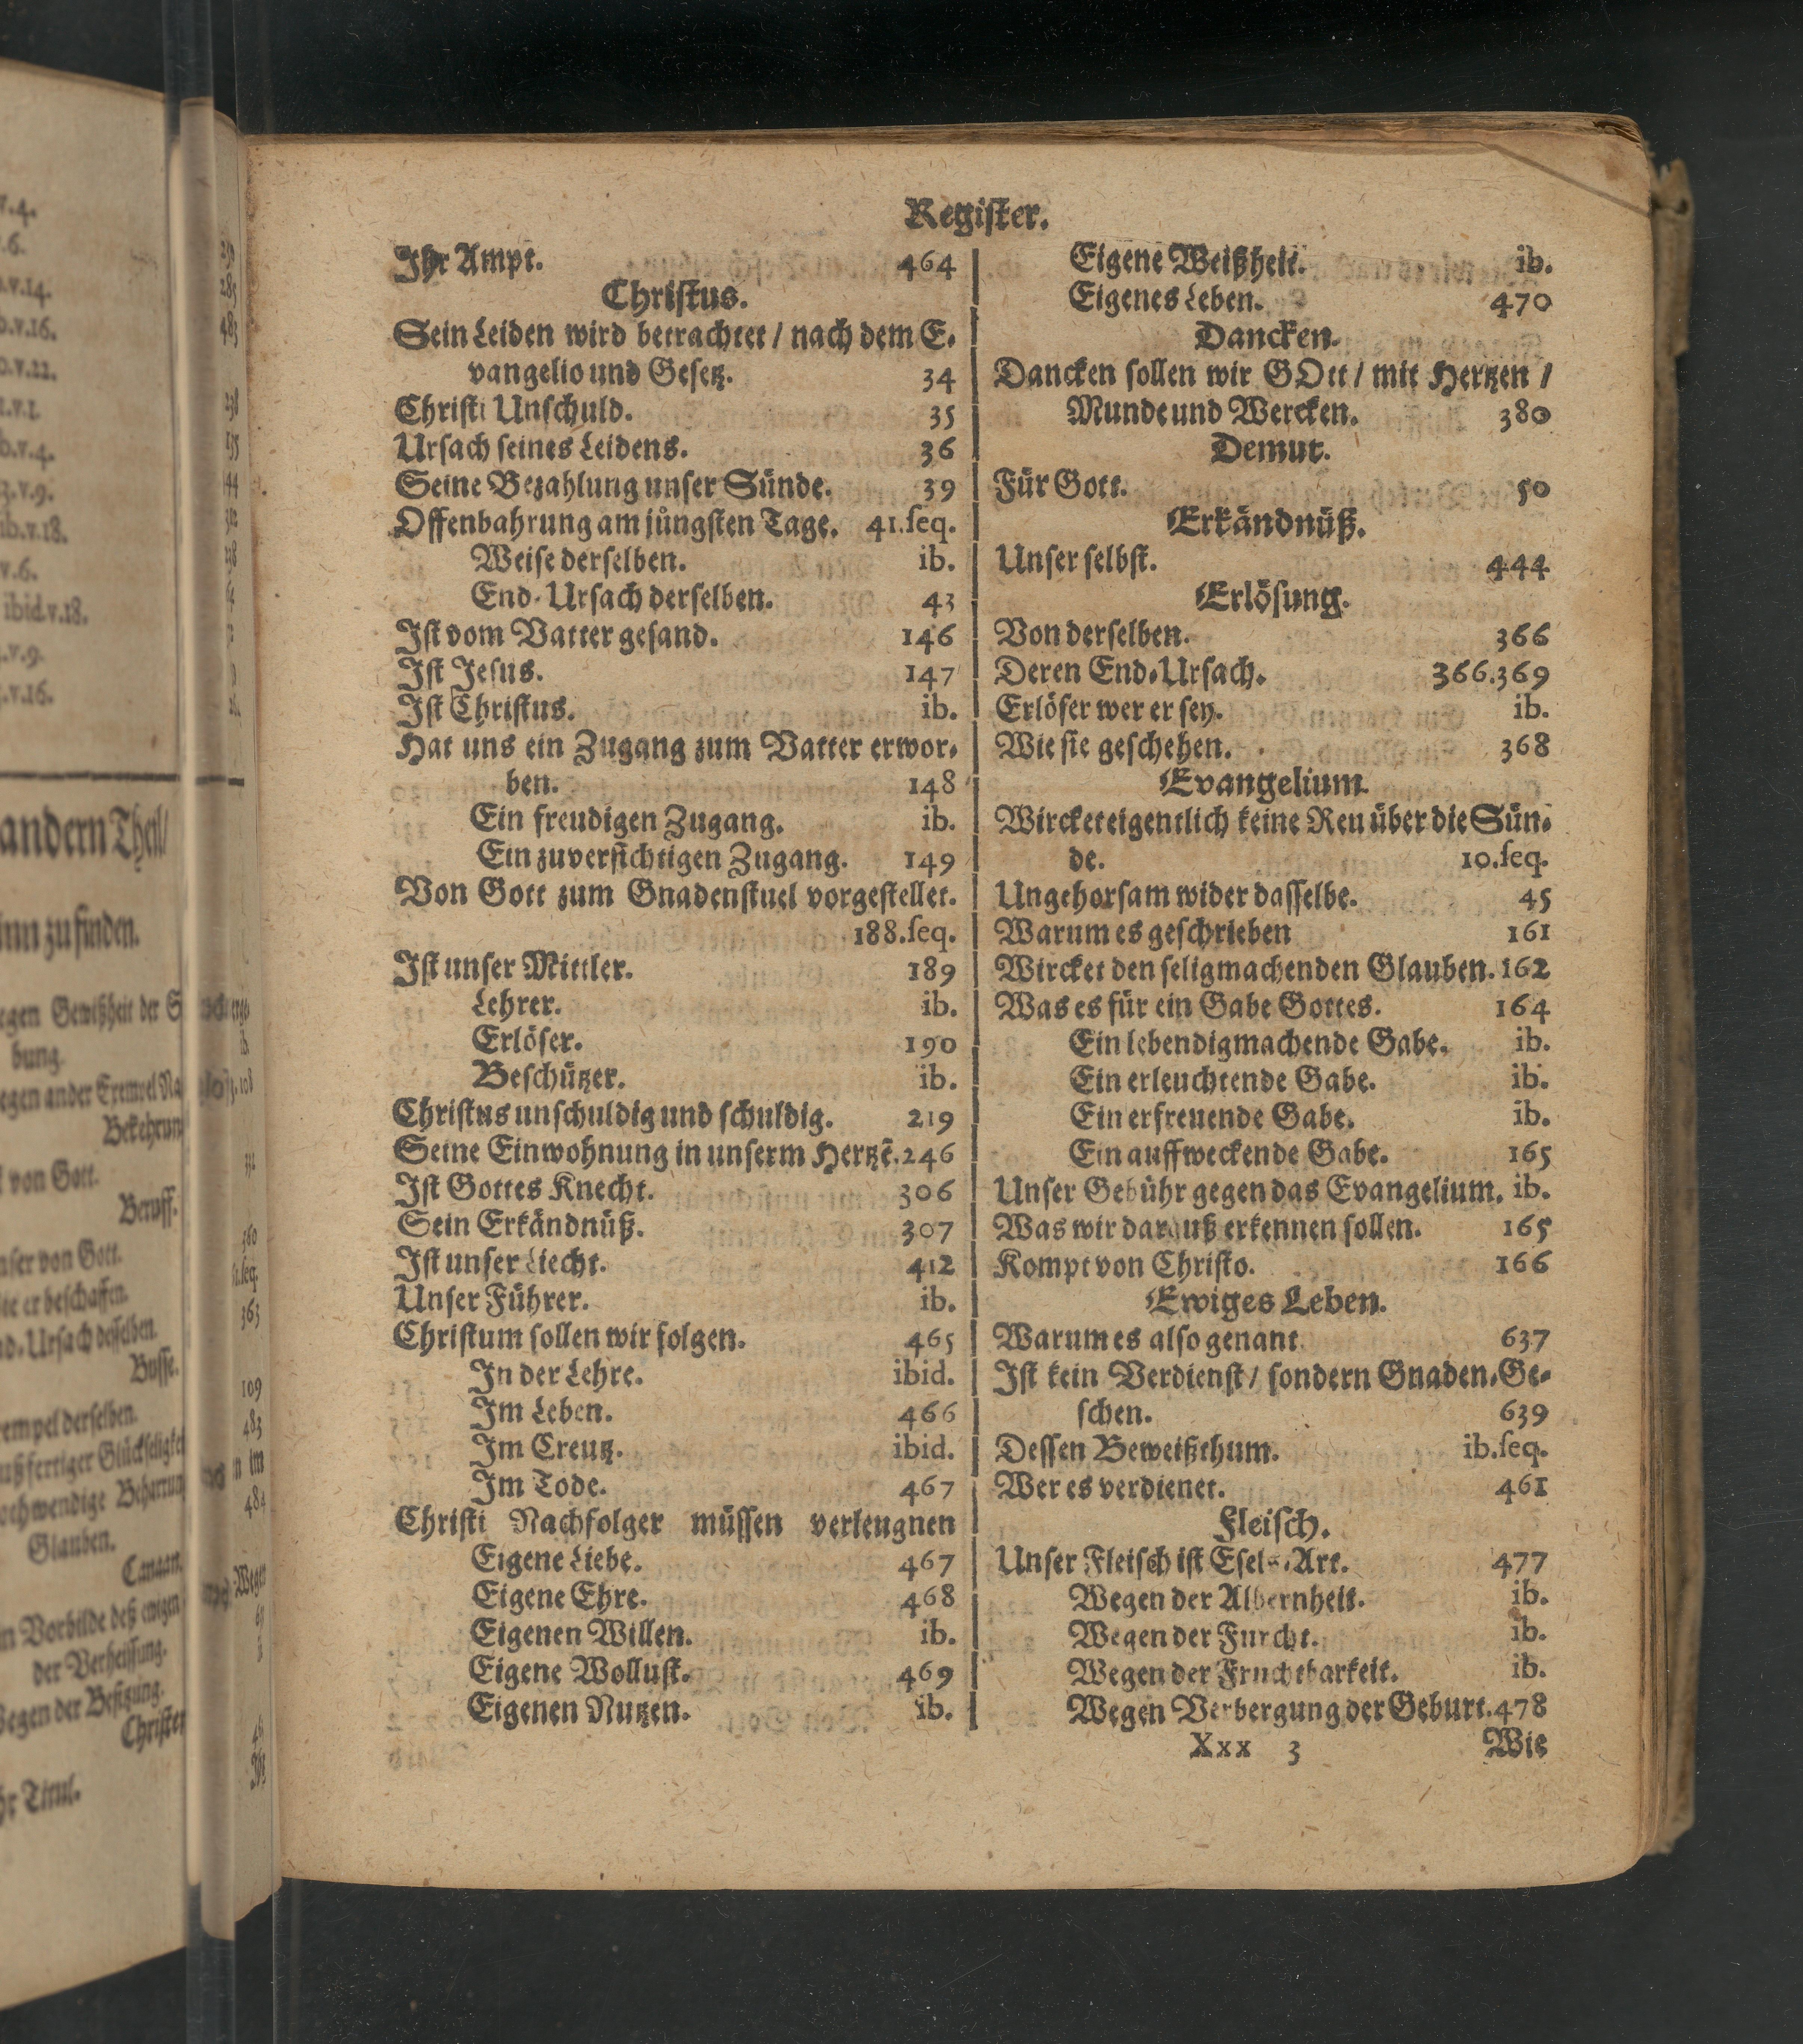 Register.
Ihr Ampt. 464
Christus.
Sein Leiden wird betrachtet / nach dem E-
vangelio und Gesetz. 34
Christi Unschuld. 35
Ursach seines Leidens. 36
Seine Bezahlung unser Sünde. 39
Offenbahrung am jüngsten Tage. 41.seq.
Weise derselben. ib.
End-Ursach derselben. 43
Ist vom Vatter gesand. 146
Ist Jesus. 147
Ist Christus. ib.
Hat uns ein Zugang zum Vatter erwor-
ben. 148
Ein freudigen Zugang. ib.
Ein zuversichtigen Zugang. 149
Von Gott zum Gnadenstuel vorgestellet.
188.seq.
Ist unser Mittler. 189
Lehrer. ib.
Erlöser. 190
Beschützer. ib.
Christus unschuldig und schuldig. 219
Seine Einwohnung in unserm Hertzẽ. 246
Ist Gottes Knecht. 306
Sein Erkändnüß. 307
Ist unser Liecht. 412
Unser Führer. ib.
Christum sollen wir folgen. 465
In der Lehre. ibid.
Im Leben. 466
Im Creutz. ibid.
Im Tode. 467
Christi Nachfolger müssen verleugnen
Eigene Liebe. 467
Eigene Ehre. 468
Eigenen Willen. ib.
Eigene Wollust. 469
Eigenen Nutzen. ib.
Eigene Weißheit. ib.
Eigenes Leben. 470
Dancken.
Dancken sollen wir GOtt / mit Hertzen /
Munde und Wercken. 380
Demut.
Für Gott. 50
Erkändnüß.
Unser selbst. 444
Erlösung.
Von derselben. 366
Deren End-Ursach. 366.369
Erlöser wer er sey. ib.
Wie sie geschehen. 368
Evangelium.
Wircket eigentlich keine Reu über die Sün-
de. 10.seq.
Ungehorsam wider dasselbe. 45
Warum es geschrieben 161
Wircket den seligmachenden Glauben. 162
Was es für ein Gabe Gottes. 164
Ein lebendigmachende Gabe. ib.
Ein erleuchtende Gabe. ib.
Ein erfreuende Gabe. ib.
Ein auffweckende Gabe. 165
Unser Gebühr gegen das Evangelium. ib.
Was wir darauß erkennen sollen. 165
Kompt von Christo. 166
Ewiges Leben.
Warum es also genant. 637
Ist kein Verdienst / sondern Gnaden-Ge-
schen. 639
Dessen Beweißthum. ib.seq.
Wer es verdienet. 461
Fleisch.
Unser Fleisch ist Esels-Art. 477
Wegen der Albernheit. ib.
Wegen der Furcht. ib.
Wegen der Fruchtbarkeit. ib.
Wegen Verbergung der Geburt. 478
Xxx 3 Wie